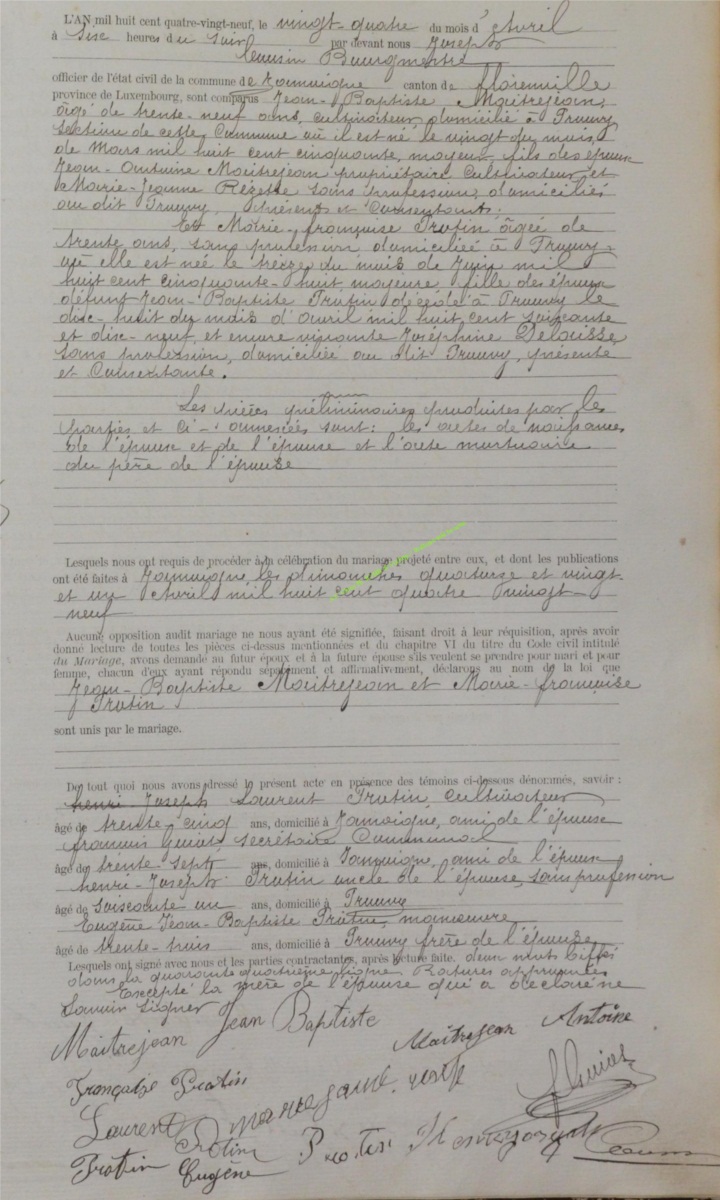 L'AN mil huit cent quatre-vingt-neuf, le vingt-quatre du mois d'Avril
à six heures du soir par devant nous Joseph
Bourgmestre
officier de l'état civil de la commune de Jamoigne canton de florenville
province de Luxembourg, sont comparus Jean-Baptiste Maitrejean,
âgé de trente-neuf ans, cultivateur domicilié à Prouvy
section de cette Commune où il est né le vingt du mois
de Mars mil huit cent cinquante, majeur, fils des époux
Jean-Antoine Maitrejean propriétaire Cultivateur et
Marie-Jeanne Rézette sans profession, domiciliés
au dit Prouvy, présents et Consentants;
Et Marie-françoise Protin âgée de
trente ans, sans profession domiciliée à Prouvy
où elle est née le treize du mois de Juin mil
huit cent cinquante-huit, majeure, fille des époux
défunt Jean-Baptiste Protin décédé à Prouvy le
dix-huit du mois d'avril mil huit cent soixante
et dix-neuf, et encore vivante Joséphine
sans profession, domiciliée au dit Prouvy, présente
et Consentante.
Les pièces préliminaires produites par les
parties et Ci-annexées sont: les actes de naissances
de l'époux et de l'épouse et l'acte mortuaire
du père de l'épouse
Lesquels nous ont requis de procéder à la célébration du mariage projeté entre eux, et dont les publications
ont été faites à Jamoigne, les dimanches quatorze et vingt-
et un Avril mil huit cent quatre vingt-
neuf
Aucune opposition audit mariage ne nous ayant été signifiée, faisant droit à leur réquisition, après avoir
donné lecture de toutes les pièces ci-dessus mentionnées et du chapitre VI du titre du Code civil intitulé
du Mariage, avons demandé au futur époux et à la future épouse s'ils veulent se prendre pour mari et pour
femme, chacun d'eux ayant répondu séparément et affirmativement, déclarons au nom de la loi que
Jean-Baptiste Maitrejean et Marie-françoise
Protin
sont unis par le mariage.
De tout quoi nous avons dressé le présent acte en présence des témoins ci-dessous dénommés, savoir :
henri-Joseph Laurent Protin, Cultivateur
âgé de trente-cinq ans, domicilié à Jamoigne, ami de l'épouse
françois secrétaire Communal
âgé de trente-sept ans, domicilié à Jamoigne, ami de l'époux
henri-Joseph Protin oncle de l'épouse, sans profession
âgé de soixante-un ans, domicilié à Prouvy
Eugène Jean-Baptiste Protin, manœuvre
âgé de trente-trois ans, domicilié à Prouvy frère de l'épouse
Lesquels ont signé avec nous et les parties contractantes, après lecture faite. deux mots biffés
dans la quarante quatrième ligne. Ratures approuvées
Excepté la mère de l'épouse qui a déclaré ne
Savoir Signer
Maitrejean Jean Baptiste
Maitrejean Antoine
Françoise Protin
Laurent Protin
Protin Eugène
Protin